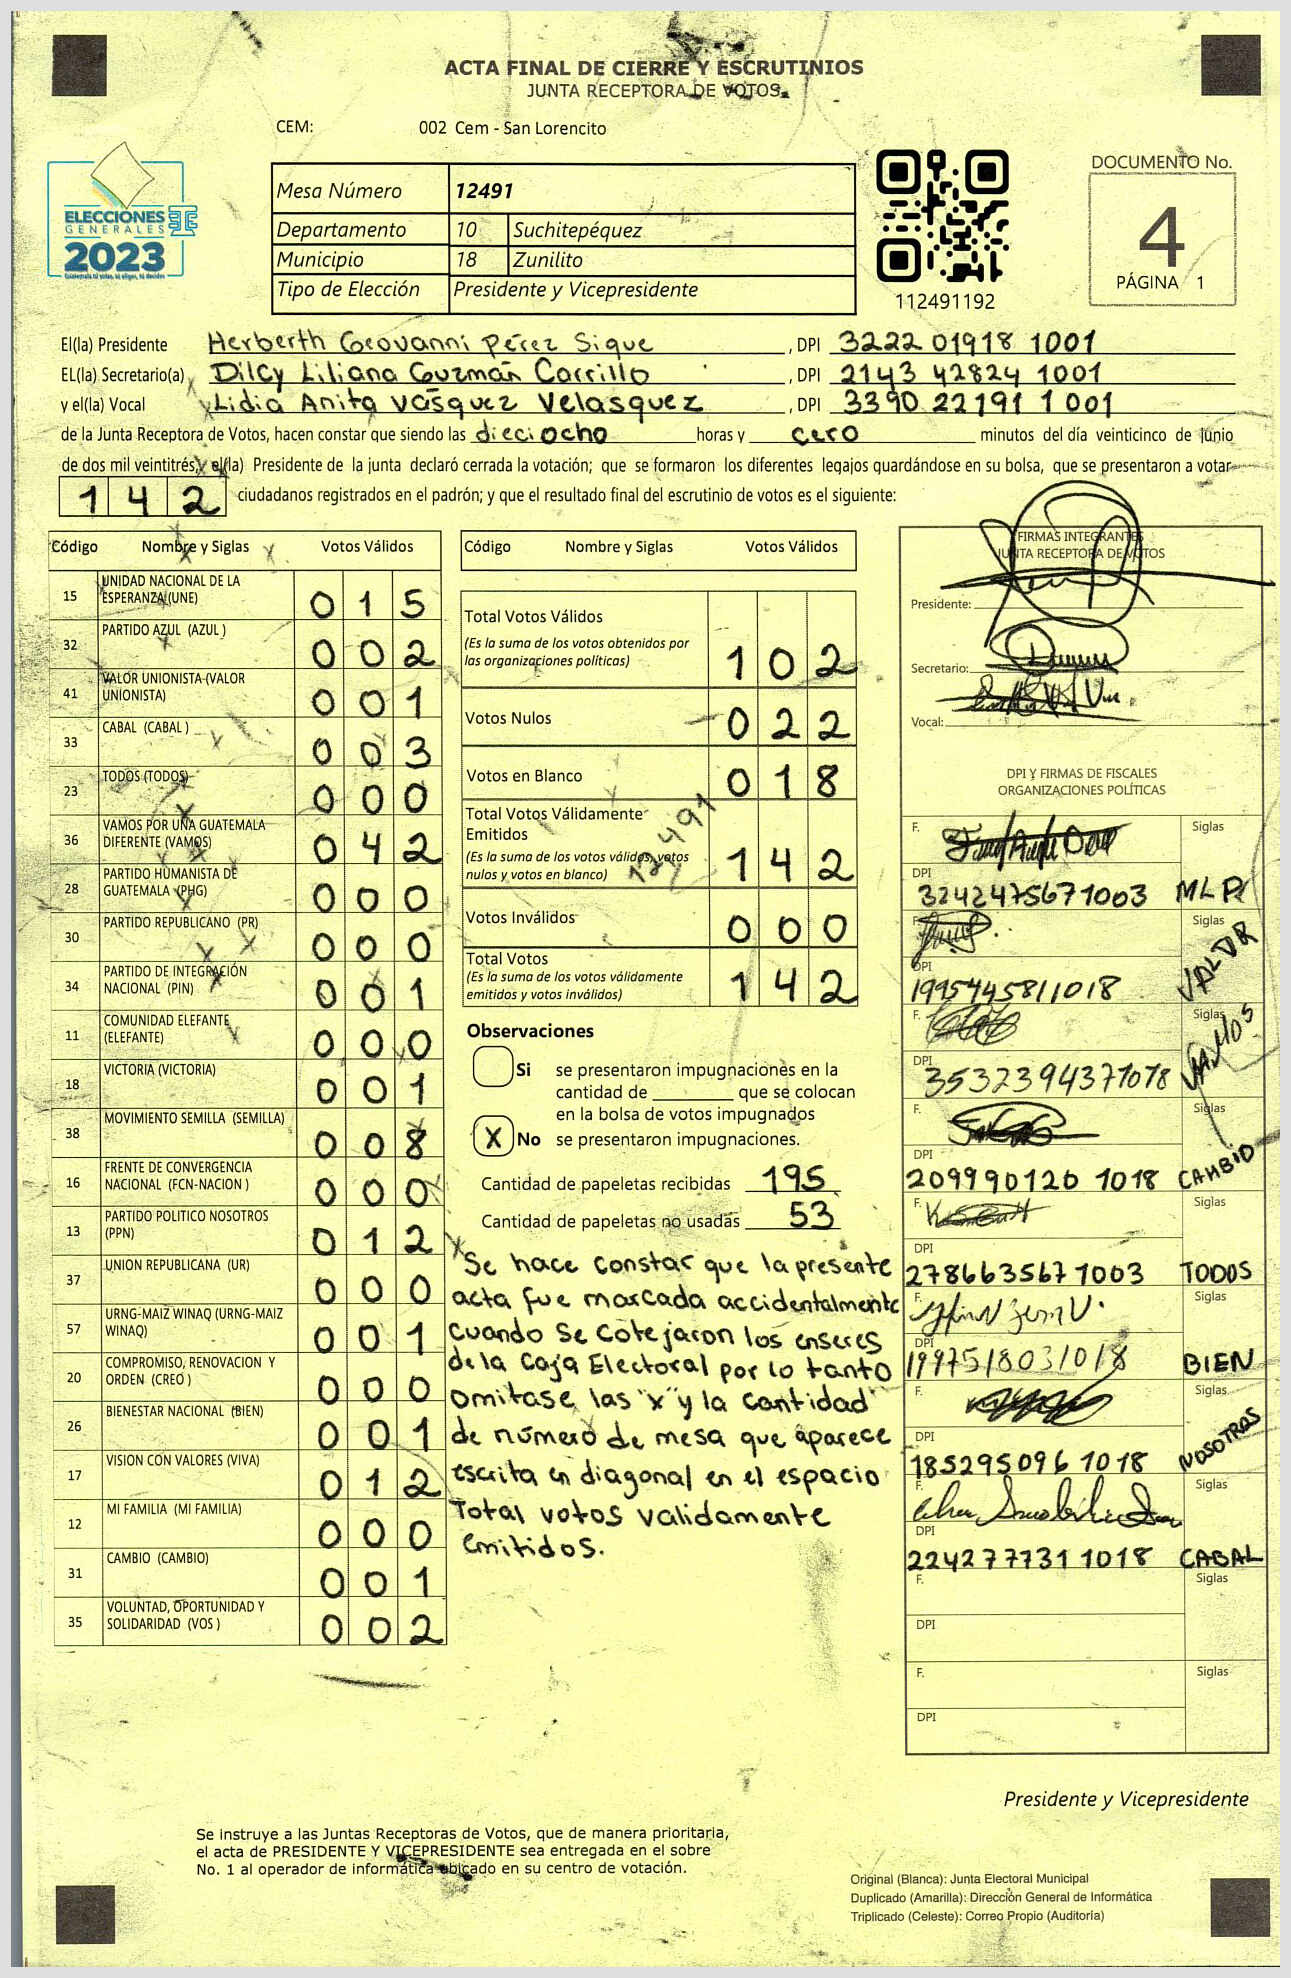 ACTA FINAL DE CIERRE Y ESCRUTINIOS
JUNTA RECEPTORA DE VOTOS
CEM: 002 Cem - San Lorencito
ELECCIONES
GENERALES
2023
Mesa Número 12491
Departamento 10 Suchitepéquez
Municipio 18 Zunilito
Tipo de Elección Presidente y Vicepresidente
112491192
DOCUMENTO No.
4
PÁGINA 1
El(la) Presidente Herberth Geovanni Pérez Sique , DPI 3222 01918 1001
EL(la) Secretario(a) Dilcy Liliana Guzmán Carrillo , DPI 2143 42824 1001
y el(la) Vocal Lidia Anita Vásquez Velasquez , DPI 3390 22191 1001
de la Junta Receptora de Votos, hacen constar que siendo las dieciocho horas y cero minutos del día veinticinco de junio
de dos mil veintitrés, el(la) Presidente de la junta declaró cerrada la votación; que se formaron los diferentes legajos guardándose en su bolsa, que se presentaron a votar
142 ciudadanos registrados en el padrón; y que el resultado final del escrutinio de votos es el siguiente:
Código Nombre y Siglas Votos Válidos
15 UNIDAD NACIONAL DE LA ESPERANZA (UNE) 015
32 PARTIDO AZUL (AZUL ) 002
41 VALOR UNIONISTA (VALOR UNIONISTA) 001
33 CABAL (CABAL ) 003
23 TODOS (TODOS) 000
36 VAMOS POR UNA GUATEMALA DIFERENTE (VAMOS) 042
28 PARTIDO HUMANISTA DE GUATEMALA (PHG) 000
30 PARTIDO REPUBLICANO (PR) 000
34 PARTIDO DE INTEGRACIÓN NACIONAL (PIN) 001
11 COMUNIDAD ELEFANTE (ELEFANTE) 000
18 VICTORIA (VICTORIA) 001
38 MOVIMIENTO SEMILLA (SEMILLA) 008
16 FRENTE DE CONVERGENCIA NACIONAL (FCN-NACION ) 000
13 PARTIDO POLITICO NOSOTROS (PPN) 012
37 UNION REPUBLICANA (UR) 000
57 URNG-MAIZ WINAQ (URNG-MAIZ WINAQ) 001
20 COMPROMISO, RENOVACION Y ORDEN (CREO ) 000
26 BIENESTAR NACIONAL (BIEN) 001
17 VISION CON VALORES (VIVA) 012
12 MI FAMILIA (MI FAMILIA) 000
31 CAMBIO (CAMBIO) 001
35 VOLUNTAD, OPORTUNIDAD Y SOLIDARIDAD (VOS ) 002
Código Nombre y Siglas Votos Válidos
Total Votos Válidos
(Es la suma de los votos obtenidos por
las organizaciones políticas) 102
Votos Nulos 022
Votos en Blanco 018
12491
Total Votos Válidamente
Emitidos
(Es la suma de los votos válidos, votos
nulos y votos en blanco) 142
Votos Inválidos 000
Total Votos
(Es la suma de los votos válidamente
emitidos y votos inválidos) 142
Observaciones
Si se presentaron impugnaciones en la
cantidad de ________ que se colocan
en la bolsa de votos impugnados
X No se presentaron impugnaciones.
Cantidad de papeletas recibidas 195
Cantidad de papeletas no usadas 53
Se hace constar que la presente
acta fue marcada accidentalmente
cuando se cotejaron los enseres
de la Caja Electoral por lo tanto
omitase las "x" y la cantidad
de número de mesa que aparece
escrita en diagonal en el espacio
Total votos validamente
emitidos.
FIRMAS INTEGRANTES
JUNTA RECEPTORA DE VOTOS
Presidente:
Secretario:
Vocal:
DPI Y FIRMAS DE FISCALES
ORGANIZACIONES POLÍTICAS
F. Siglas
DPI
3242475671003 MLP
F. Siglas
DPI
1995445811018 VALOR
F. Siglas
DPI
3532394371018 VAMOS
F. Siglas
DPI
209990120 1018 CAMBIO
F. Siglas
DPI
2786635671003 TODOS
F. Siglas
DPI
1997518031018 BIEN
F. Siglas
DPI
185295096 1018 NOSOTROS
F. Siglas
DPI
224277731 1018 CABAL
F. Siglas
DPI
F. Siglas
DPI
Presidente y Vicepresidente
Se instruye a las Juntas Receptoras de Votos, que de manera prioritaria,
el acta de PRESIDENTE Y VICEPRESIDENTE sea entregada en el sobre
No. 1 al operador de informática ubicado en su centro de votación.
Original (Blanca): Junta Electoral Municipal
Duplicado (Amarilla): Dirección General de Informática
Triplicado (Celeste): Correo Propio (Auditoría)